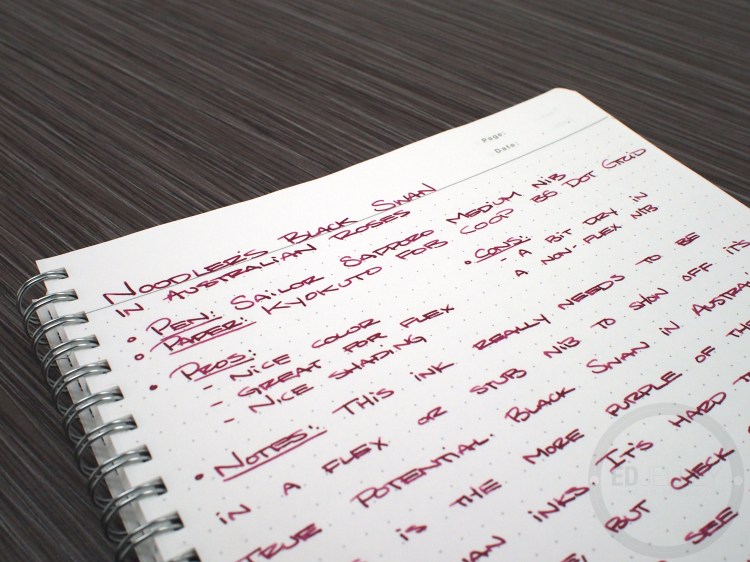 Page:
Date:
NOODLER'S BLACK SWAN
IN AUSTRALIAN ROSES
• PEN: SAILOR SAPPORO MEDIUM NIB
• PAPER: KYOKUTO FOB COOP B5 DOT GRID
• PROS:
- NICE COLOR
- GREAT FOR FLEX
- NICE SHADING
• CONS:
- A BIT DRY IN
A NON-FLEX NIB
• NOTES: THIS INK REALLY NEEDS TO BE
IN A FLEX OR STUB NIB TO SHOW OFF IT'S
TRUE POTENTIAL. BLACK SWAN IN AUSTRAL
IS THE MORE PURPLE OF TH
INKS. IT'S HARD T
BUT CHECK
SEE
ED